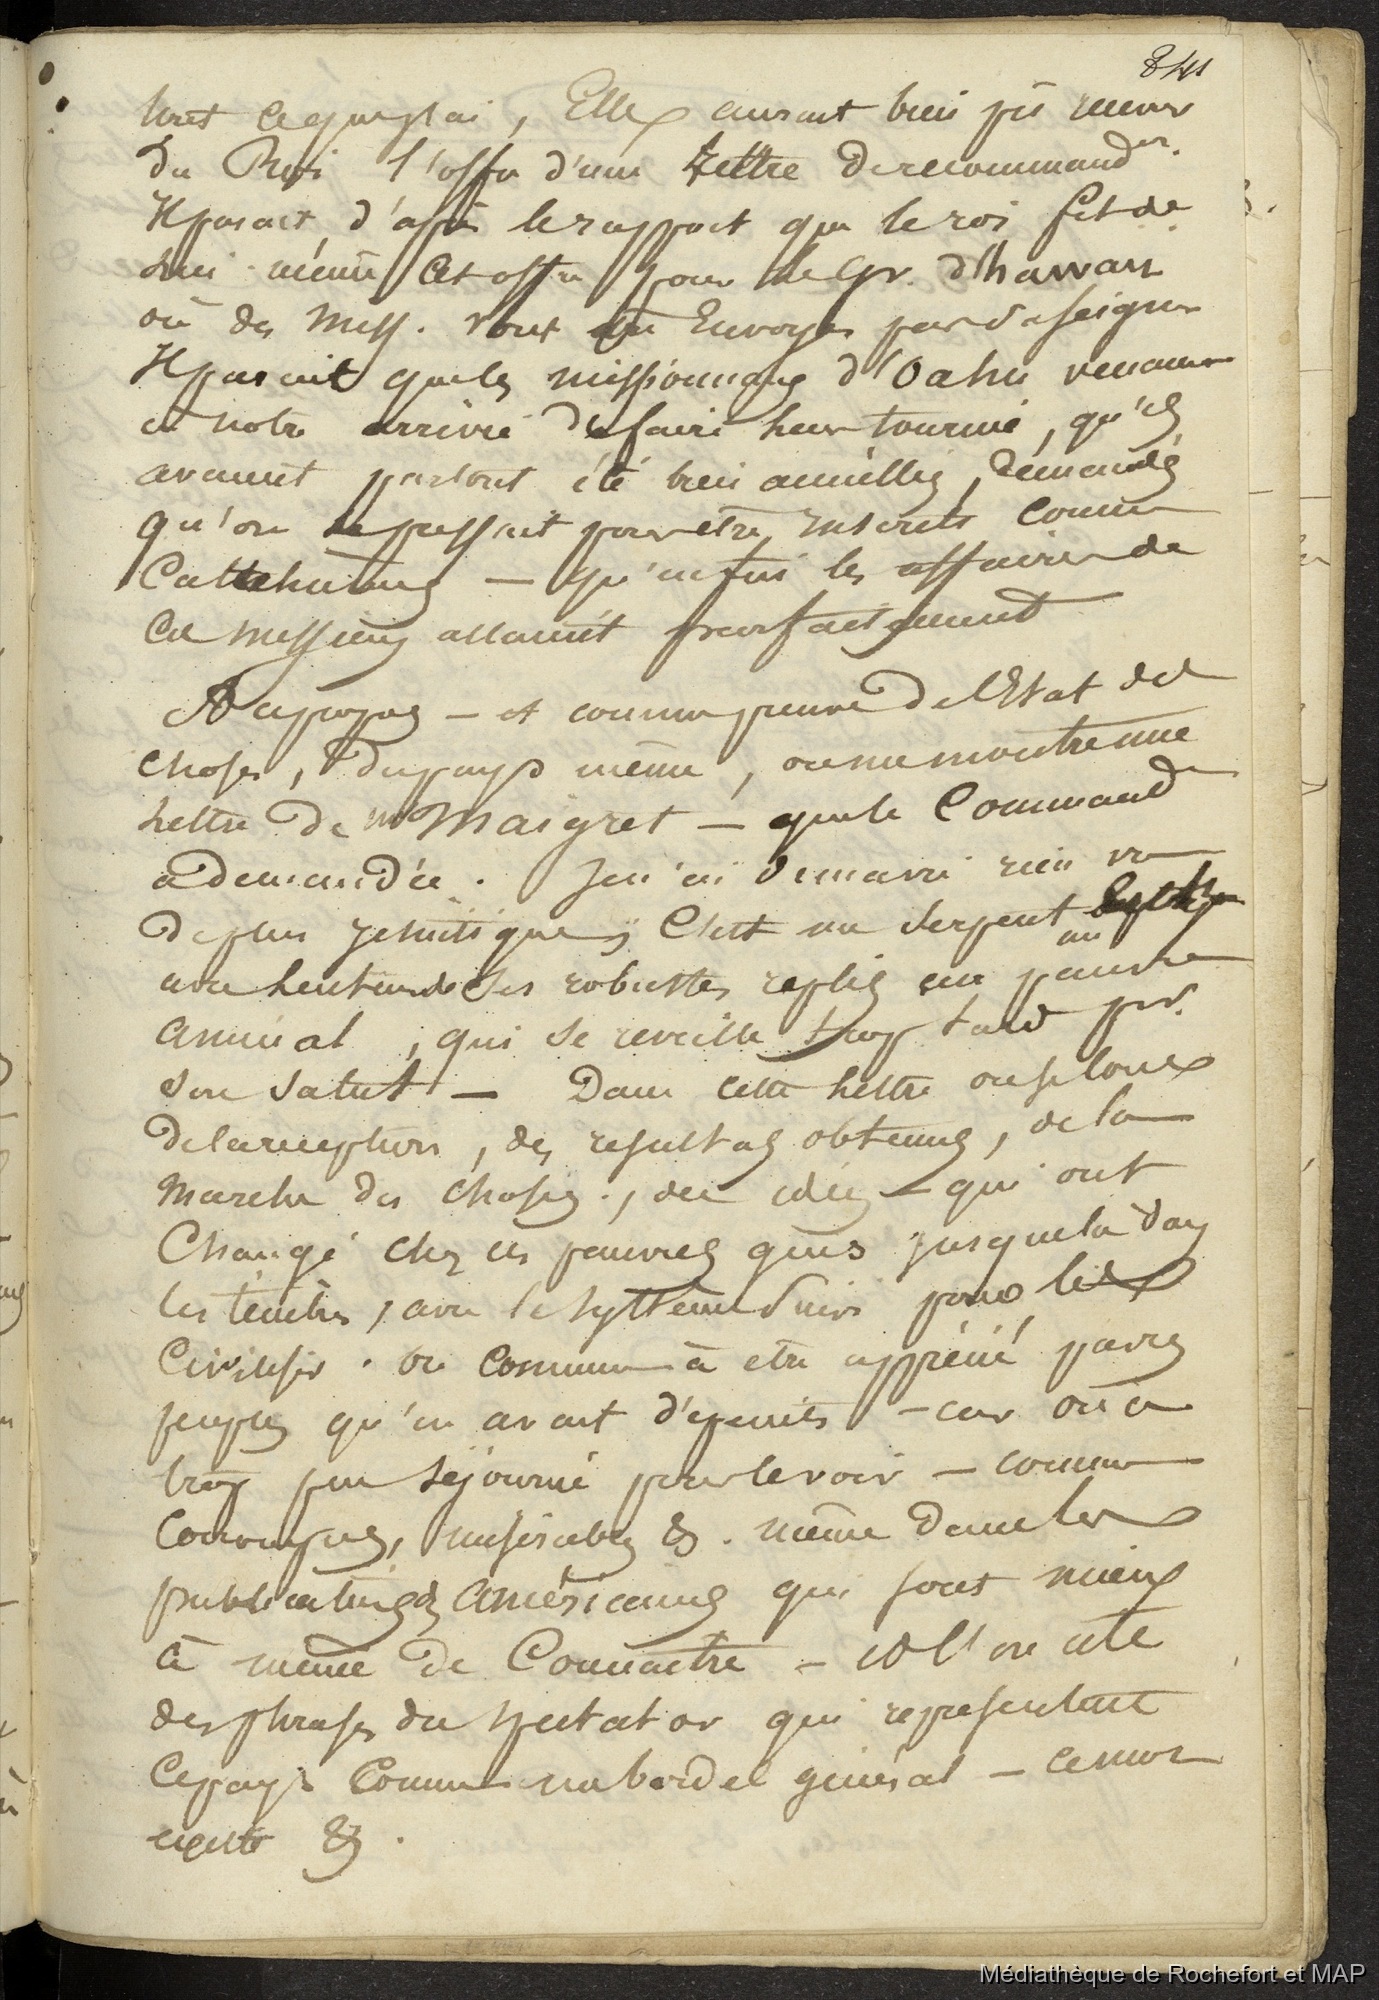 841
tiret ce que j'ai, Elle aurait bien pû
du Roi l'offre d'une Lettre de recommand.on
Il parait, d'après le rapport que le roi fit de
lui même cet offre pour le Gr. d'hawaii
où des Miss. vont être Envoyés par
Il parait que les missionnaires d'Oahu venaient
à notre arrivée de faire leur tournée, qu'ils
avaient partout été bien acceuillis, demandés
qu'on se pressait pour être inscrits comme
Cattehumenes — qu'enfin les affaires de
ces messieurs allaient parfaitement
A ce propos — et comme preuve de l'Etat des
choses, du pays même, on me montre une
Lettre de mr Maigret — que le Command.
a demandée. Je n'en ai rien vu
de plus jesuitique, C'est un serpent
avec ses robustes replis un pauvre
animal, qui se reveille trop tard pr.
son salut — Dans cette Lettre on se loue
de la reception, des resultats obtenus, de la
marche des choses, des idées — qui ont
changé chez ces pauvres gens jusque là dans
les tenebres, avec le systême suivi pour les
Civiliser. On commence à etre apprécié par ces
peuples qu'on avait dépeints — car on a
trop peu séjourné pour le voir — comme
corrompus, miserables &. même dans les
publications Américaines qui sont mieux
à même de Connaitre — et l'on cite
des phrases du spectator qui representent
ce pays comme un bordel général — ce mot
existe &.
Médiathèque de Rochefort et MAP